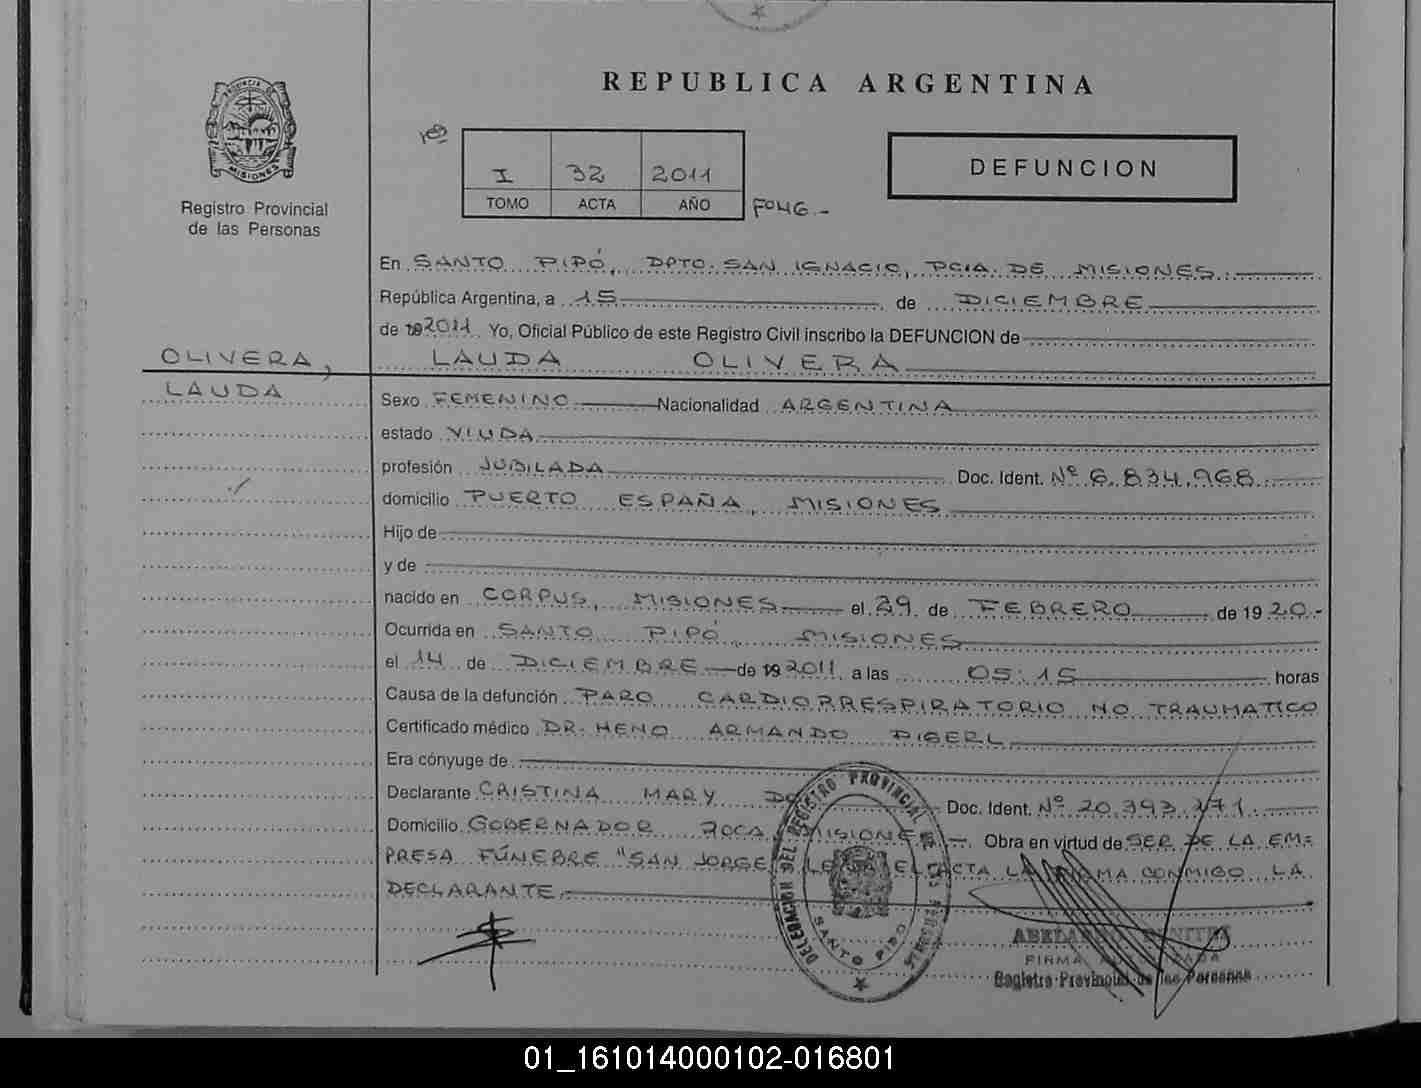 REPUBLICA ARGENTINA
PROVINCIA DE
MISIONES
Registro Provincial
de las Personas
I 32 2011
TOMO ACTA AÑO
DEFUNCION
En SANTO PIPÓ, DPTO. SAN IGNACIO, PCIA. DE MISIONES.
República Argentina, a 15 de DICIEMBRE
de 19 2011 Yo, Oficial Público de este Registro Civil inscribo la DEFUNCION de
LAUDA OLIVERA
OLIVERA,
LAUDA
Sexo FEMENINO Nacionalidad ARGENTINA
estado VIUDA
profesión JUBILADA Doc. Ident. Nº 6.834.968.
domicilio PUERTO ESPAÑA, MISIONES
Hijo de
y de
nacido en CORPUS, MISIONES el 29 de FEBRERO de 1920.-
Ocurrida en SANTO PIPÓ, MISIONES
el 14 de DICIEMBRE de 19 2011 a las 05:15 horas
Causa de la defunción PARO CARDIORRESPIRATORIO NO TRAUMATICO
Certificado médico DR. HENO ARMANDO
Era cónyuge de
Declarante CRISTINA MARY Doc. Ident. Nº 20.393.171.
Domicilio GOBERNADOR ROCA, MISIONES. Obra en virtud de SER DE LA EM=
PRESA FÚNEBRE "SAN JORGE EL ACTA LA FIRMA CONMIGO LA
DECLARANTE.
DELEGACION DEL REGISTRO PROVINCIAL DE LAS PERSONAS
SANTO PIPO
FIRMA AUTORIZADA
Registro Provincial de las Personas
01_161014000102-016801